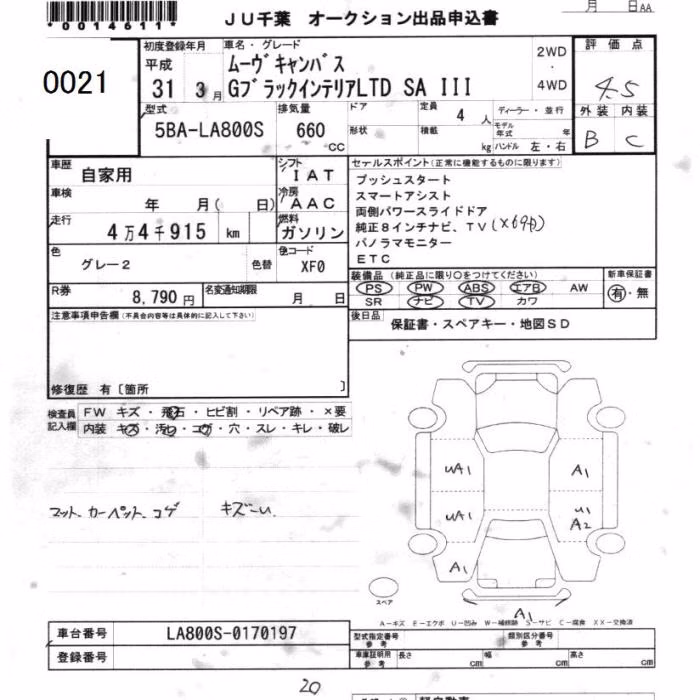 *0014611*
JU千葉 オークション出品申込書
月 日AA
0021
初度登録年月 車名・グレード
平成 31 3月
ムーヴキャンバス
GブラックインテリアLTD SA III
2WD ・ 4WD
評価点
4.5
外装 内装
B C
型式 5BA-LA800S
排気量 660 CC
ドア
形状
定員 4 人
積載 kg
ディーラー・並行
モデル年式 年
ハンドル 左・右
車歴 自家用
シフト IAT
車検 年 月( 日)
冷房 AAC
走行 4万4千915 km
燃料 ガソリン
色 グレー2 色替
色コード XF0
R券 8,790円
名変通知期限 月 日
セールスポイント(正常に機能するものに限ります)
プッシュスタート
スマートアシスト
両側パワースライドドア
純正8インチナビ、TV
パノラマモニター
ETC
装備品 (純正品に限り○をつけてください)
PS PW ABS エアB AW
SR ナビ TV カワ
新車保証書
有・無
後日品 保証書・スペアキー・地図SD
注意事項申告欄(不具合内容等は具体的に記入して下さい)
修復歴 有〔箇所 〕
検査員記入欄
FW キズ・飛石・ヒビ割・リペア跡・×要
内装 キズ・汚レ・コゲ・穴・スレ・キレ・破レ
マット、カーペット、コゲ キズ
UA1 A1
UA1 U1
A2
A1
A1
スペア
A−キズ E−エクボ U−凹み W−補修跡 S−サビ C−腐食 XX−交換済
車台番号 LA800S-0170197
登録番号
型式指定番号 参考
類別区分番号 参考
車庫証明用 参考 長さ cm 幅 cm 高さ cm
20